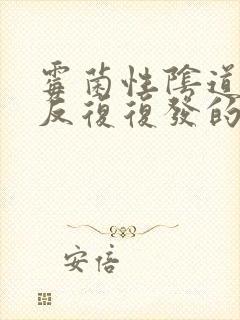 霉菌性陰道
反復復發的
安倍